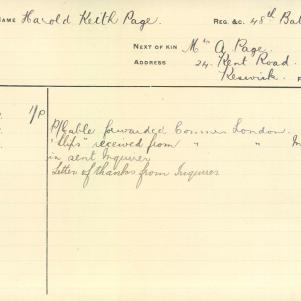 NAME Harold Keith Page. REG. &C. 48th Bat
NEXT OF KIN Mrs A. Page.
ADDRESS 24. Kent Road.
Keswick.
1/P P/Cable forwarded Commr London.
Slips received from " "
in sent Inquirer
Letter of thanks from Inquirer